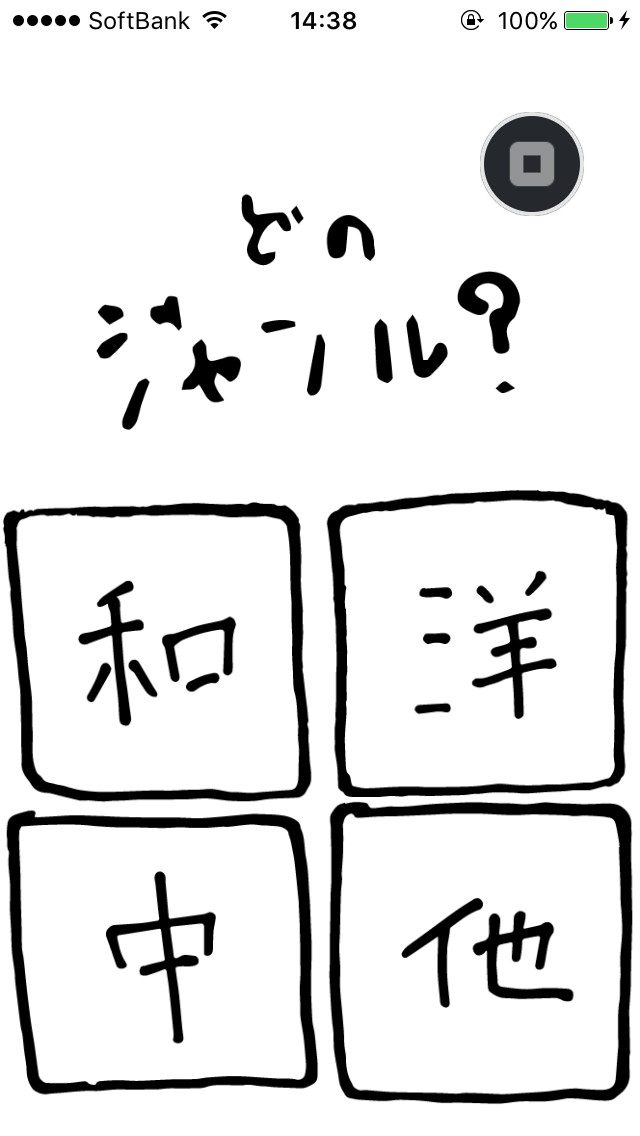 SoftBank 14:38 100%
どの
ジャンル?
和 洋
中 他